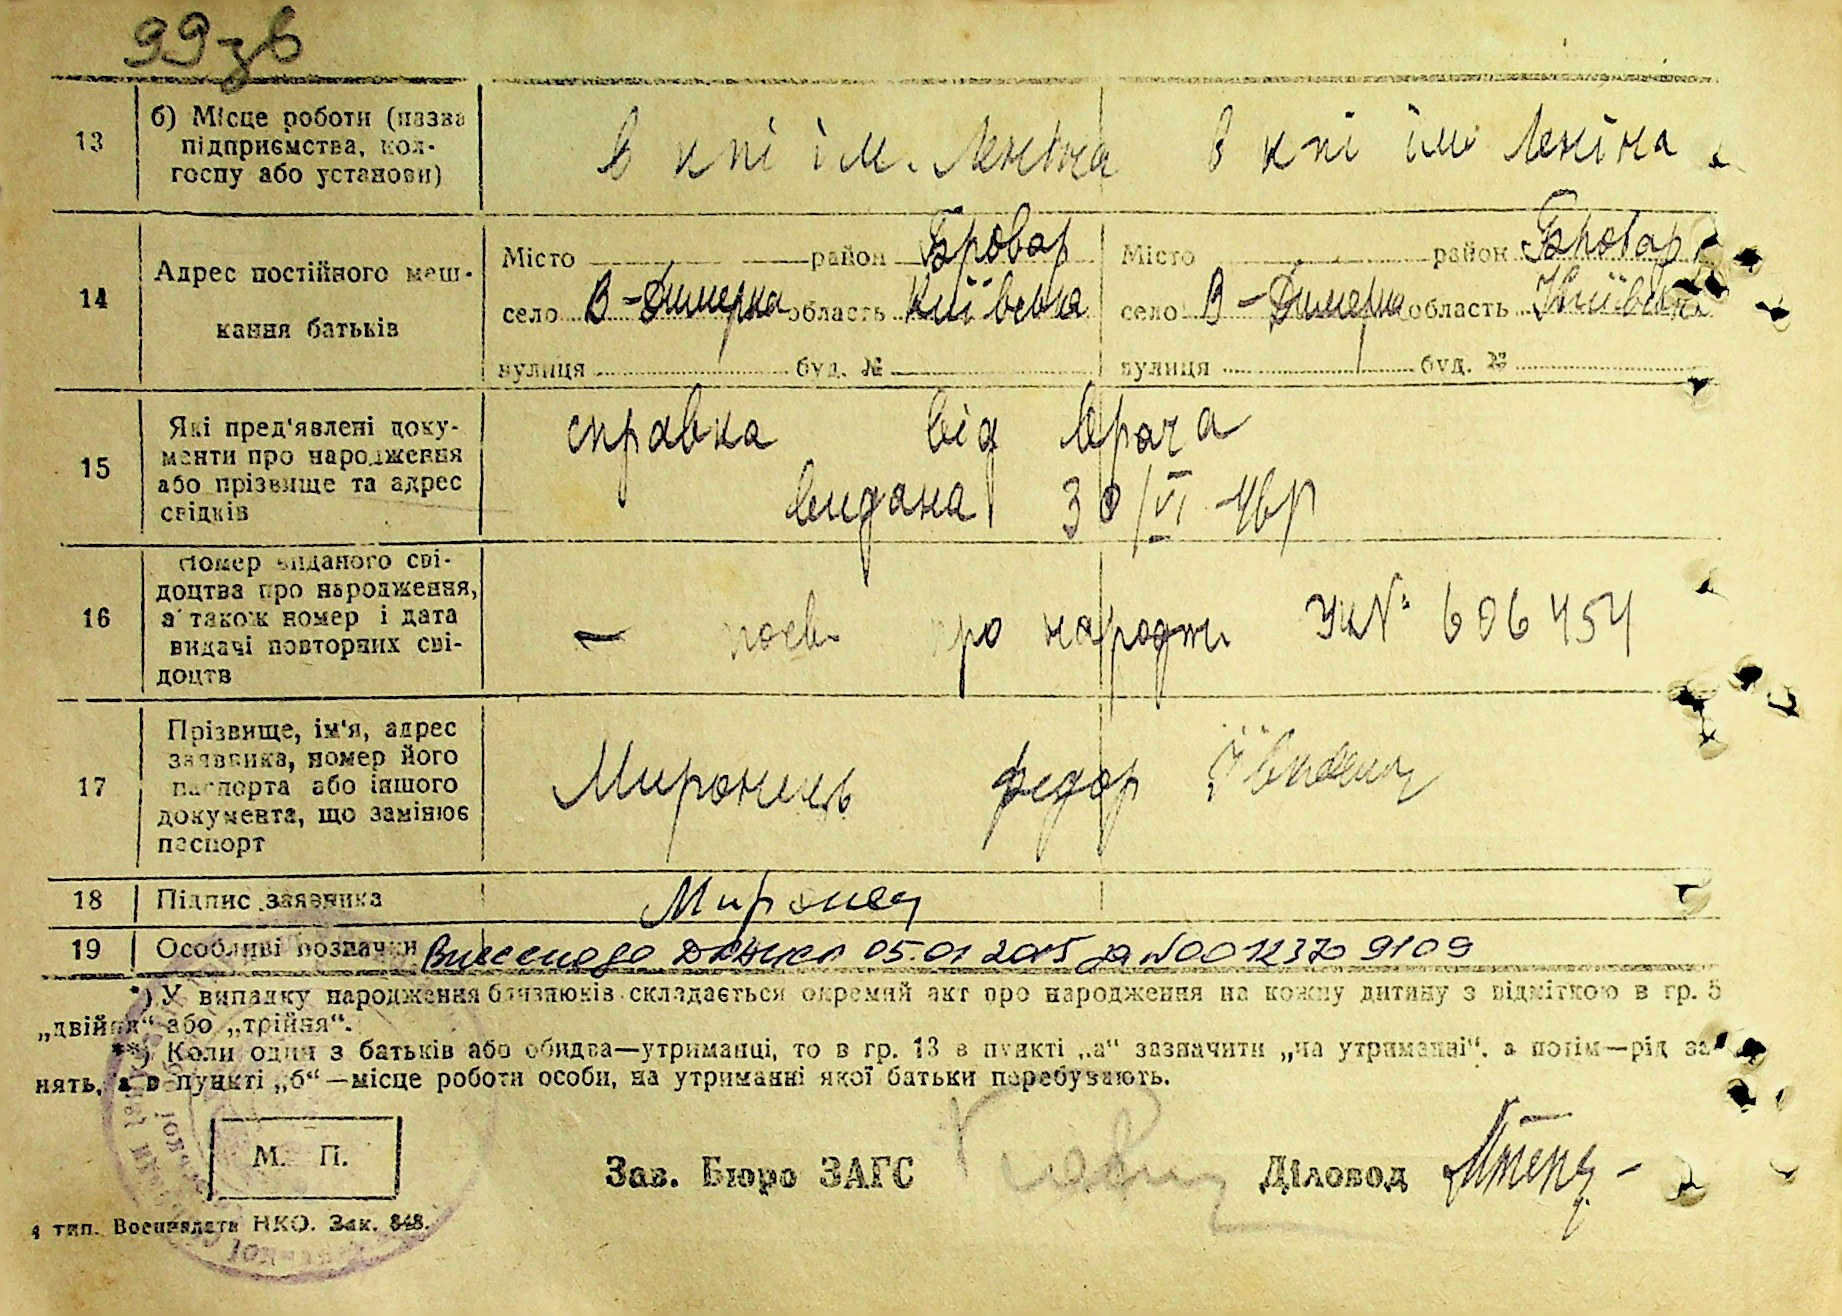 99 зв
13
б) Місце роботи (назва
підприємства, кол-
госпу або установи)
в кпі ім. Леніна
в кпі ім Леніна
14
Адрес постійного меш-
кання батьків
Місто район Бровар
село В-Димерка область Київська
вулиця буд. №
Місто район Бровар
село В-Димерка область Київська
вулиця буд. №
15
Які пред'явлені доку-
менти про народження
або прізвище та адрес
свідків
справка від врача
видана 30/VI 46р
16
Номер виданого сві-
доцтва про народження,
а також номер і дата
видачі повторних сві-
доцтв
про народж. № 606454
17
Прізвище, ім'я, адрес
заявника, номер його
паспорта або іншого
документа, що замінює
паспорт
Миронець Федор
18
Підпис заявника
Миронец
19
Особливі позначки
Внесено до ДРАЦСГ 05.01.2015 за №00123709109
*) У випадку народження близнюків складається окремий акт про народження на кожну дитину з відміткою в гр. 5
„двійня“ або „трійня“.
**) Коли один з батьків або обидва—утриманці, то в гр. 13 в пункті „а“ зазначити „на утриманні“, а потім—рід за-
нять, а в пункті „б“—місце роботи особи, на утриманні якої батьки перебувають.
М. П.
Зав. Бюро ЗАГС
Діловод
4 тип. Воениздата НКО. Зак. 848.